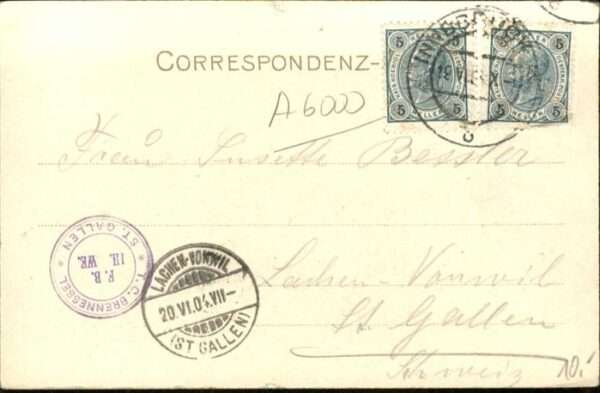 CORRESPONDENZ-
5 5 5 5
INNSBRUCK
A6000
Frau Susette Bessler
ST. GALLEN * T. C. BRENNESSEL *
F. B.
IH. WE.
LACHEN-VONWIL
20.VI.04.VII-
(ST GALLEN)
Lachen-Vonwil
St. Gallen
Schweiz
10.-